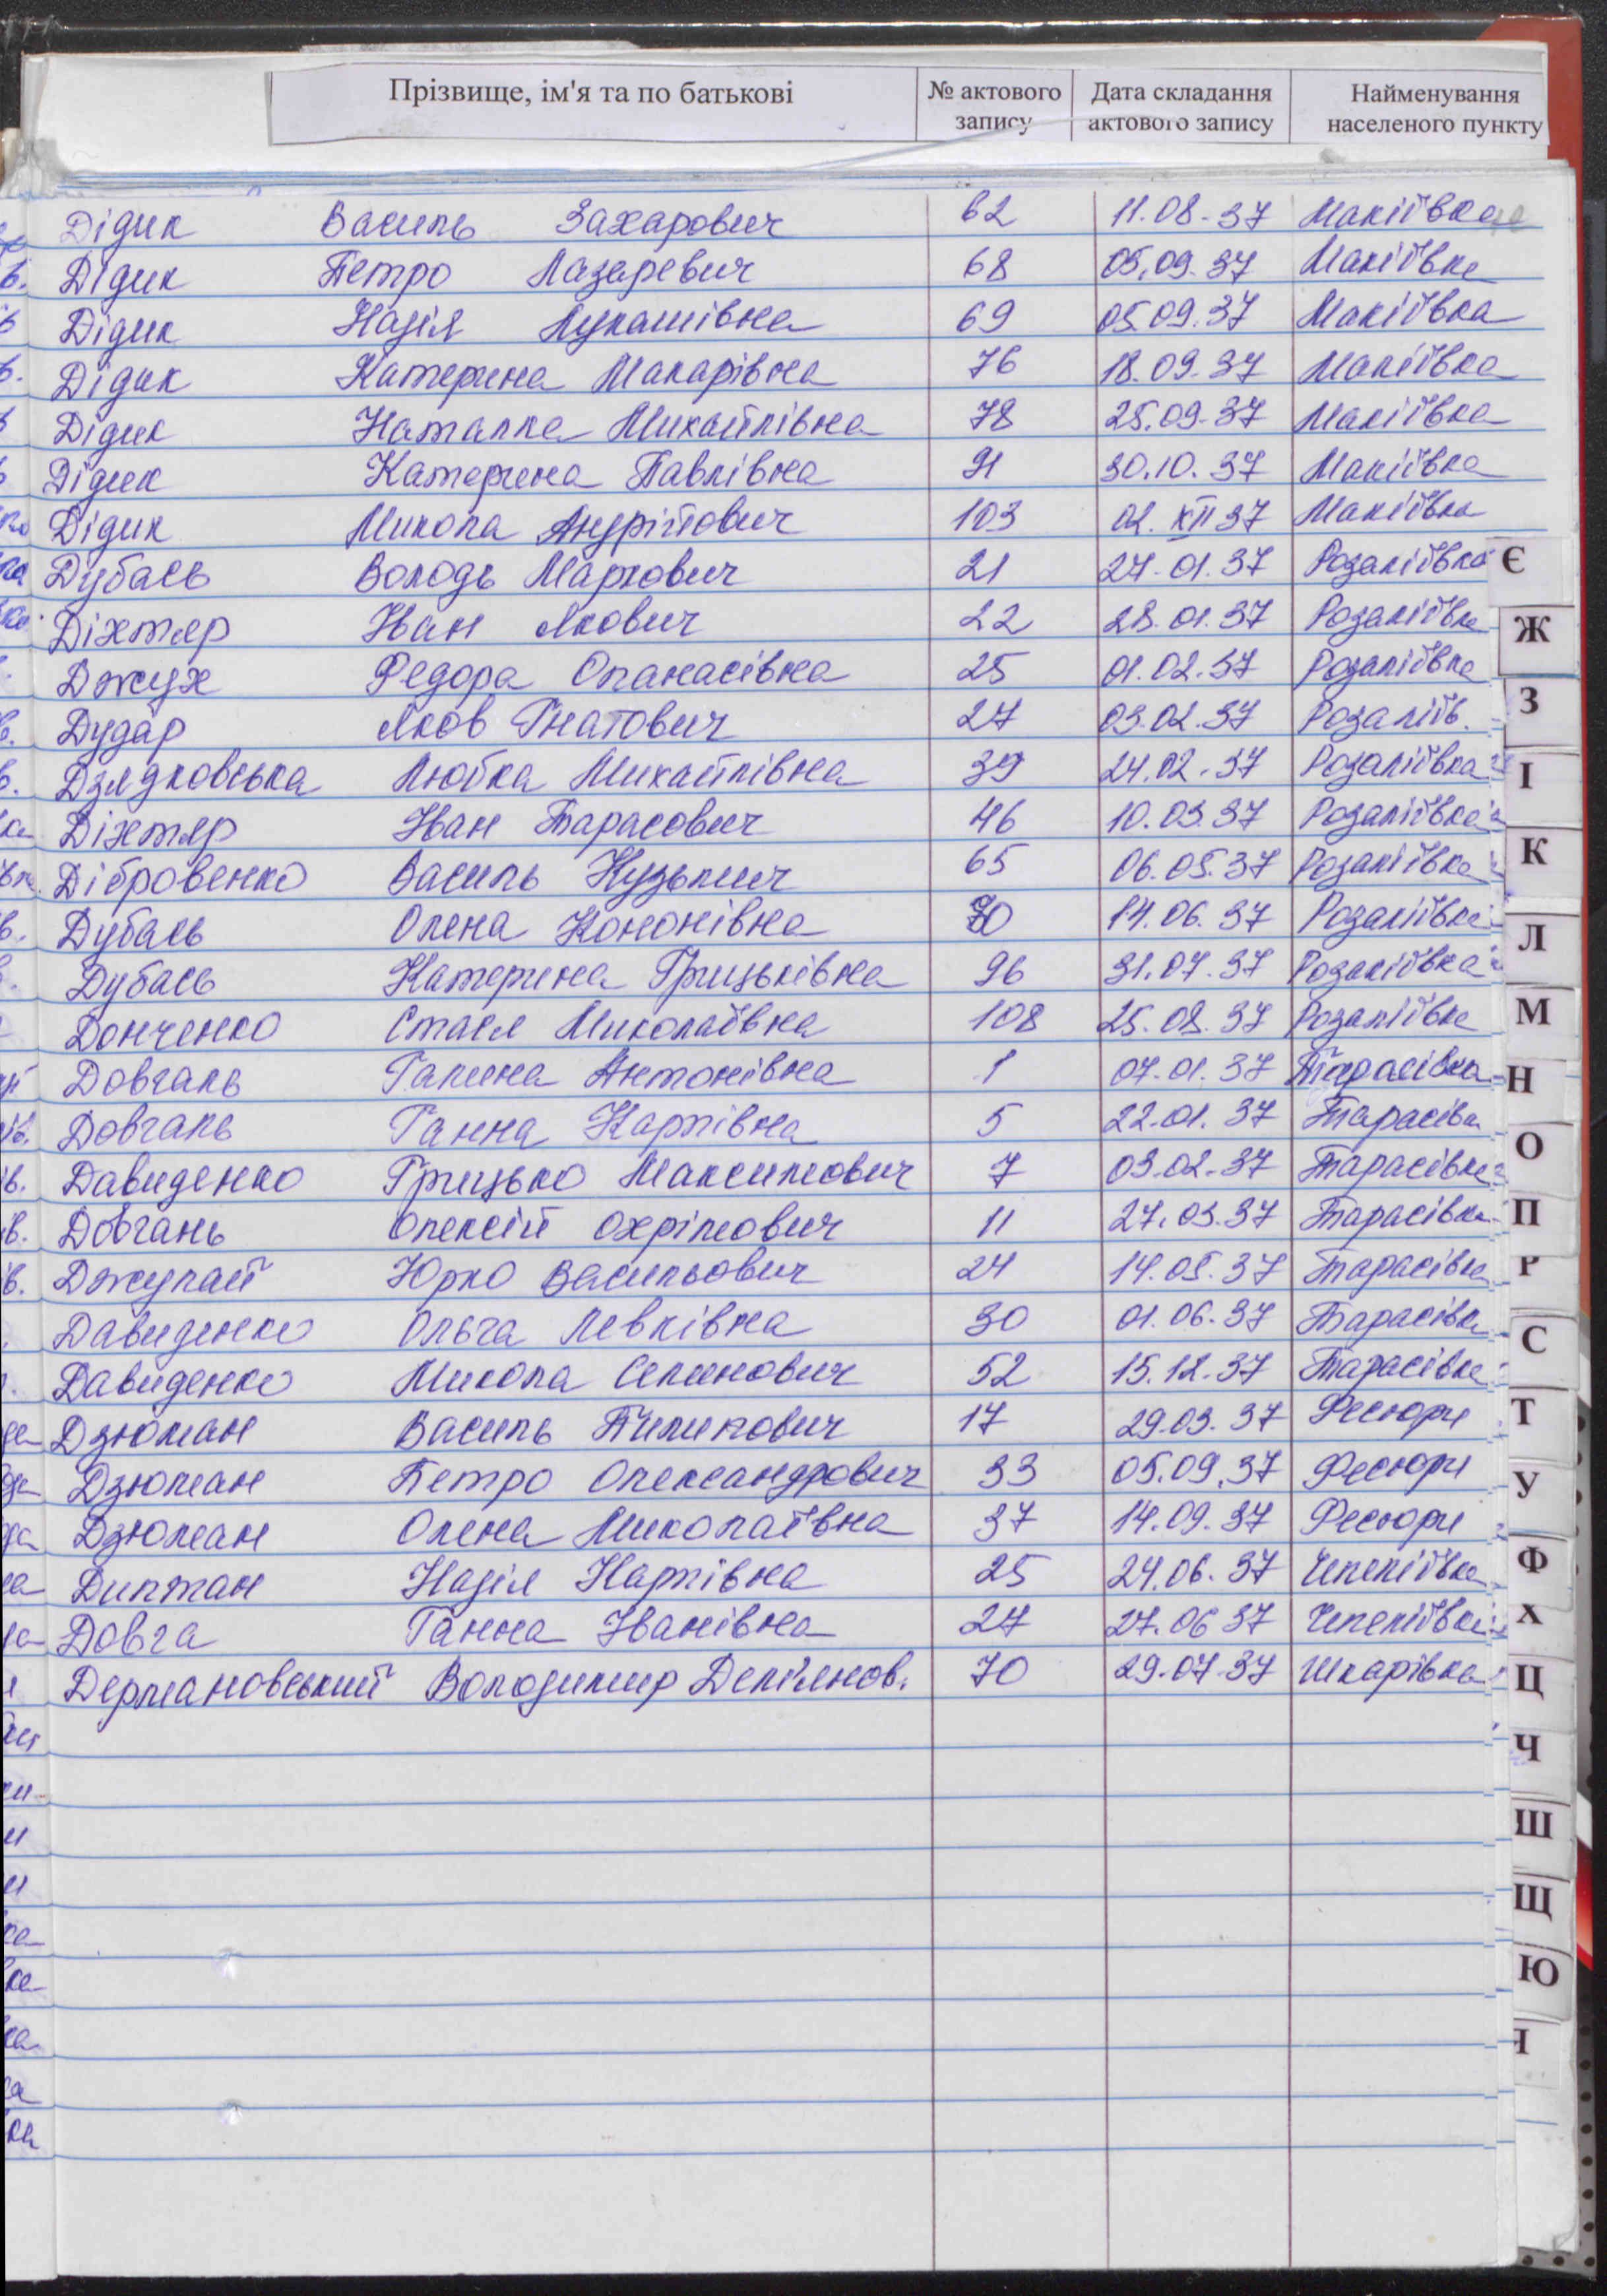 Прізвище, ім'я та по батькові № актового запису Дата складання актового запису Найменування населеного пункту
Дідик Василь Захарович 62 11.08-37 Макіївка
Дідик Петро Лазаревич 68 05.09.37 Макіївка
Дідик Надія Лукашівна 69 05.09.37 Макіївка
Дідик Катерина Макарівна 76 18.09.37 Макіївка
Дідик Наталка Михайлівна 78 25.09.37 Макіївка
Дідик Катерина Павлівна 91 30.10.37 Макіївка
Дідик Микола Андрійович 103 02.XII 37 Макіївка
Дубась Володь Маркович 21 27.01.37 Розаліївка
Діхтяр Іван Якович 22 28.01.37 Розаліївка
Джух Федора Опанасівна 25 01.02.37 Розаліївка
Дудар Яков Гнатович 27 03.02.37 Розаліїв.
Дзядковська Любка Михайлівна 39 24.02.37 Розаліївка
Діхтяр Іван Тарасович 46 10.03.37 Розаліївка
Дібровенко Василь Кузьмич 65 06.05.37 Розаліївка
Дубась Олена Кононівна 70 14.06.37 Розаліївка
Дубась Катерина Грицьківна 96 31.07.37 Розаліївка
Донченко Стася Миколаївна 108 25.08.37 Розаліївка
Довгаль Галина Антонівна 1 07.01.37 Тарасівка
Довгань Ганна Карпівна 5 22.01.37 Тарасівка
Давиденко Грицько Максимович 7 03.02.37 Тарасівка
Довгань Олексій Охрімович 11 27.03.37 Тарасівка
Джупай Юрко Васильович 24 14.05.37 Тарасівка
Давиденко Ольга Левківна 30 01.06.37 Тарасівка
Давиденко Микола Семенович 52 15.12.37 Тарасівка
Дзюман Василь Пилипович 17 29.03.37 Фесюри
Дзюман Петро Олександрович 33 05.09.37 Фесюри
Дзюман Олена Миколаївна 37 14.09.37 Фесюри
Диптан Надія Карпівна 25 24.06.37 Чепеліївка
Довга Ганна Іванівна 27 27.06 37 Чепеліївка
Держановський Володимир Дем'янов. 70 29.07.37 Шкарівка
Є
Ж
З
І
К
Л
М
Н
О
П
Р
С
Т
У
Ф
Х
Ц
Ч
Ш
Щ
Ю
Я